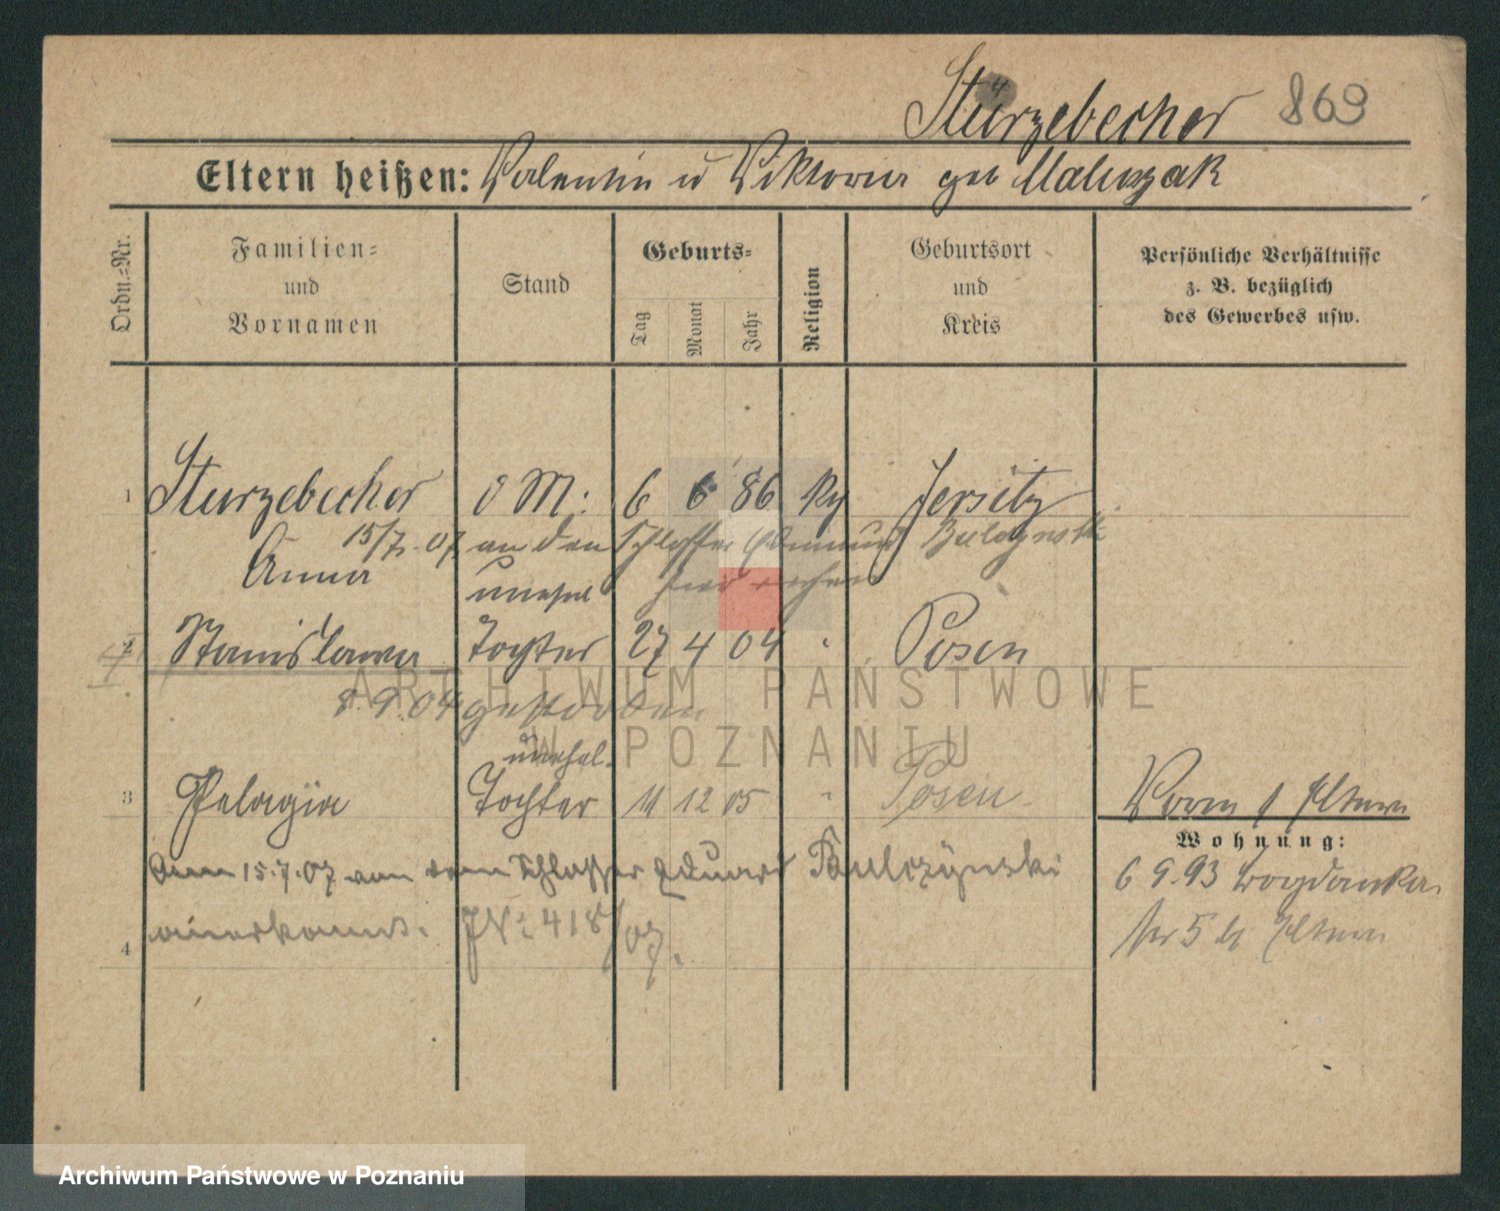 Stürzebecher 869
Eltern heißen: Valentin u Viktoria geb Matuszak
Ordn.-Nr.
Familien-
und
Vornamen
Stand
Geburts-
Tag
Monat
Jahr
Religion
Geburtsort
und
Kreis
Persönliche Verhältnisse
z. B. bezüglich
des Gewerbes usw.
1 Sturzebecher o M: 6 6 86 Jersitz
15/7.07 an den Schlosser Edmund
Anna unehel
2 Stanislawa Tochter 27 4 04 " Posen
8.9.04 gestorben
unehel.
3 Pelagia Tochter 11 12 05 " Posen
Vorm / Eltern
Wohnung:
Am 15.7.07 von dem Schlosser Eduard Paulczynski
6 9.93 Bogdanka
anerkannt. J№: 418/07.
4
5 Eltern
ARCHIWUM PAŃSTWOWE
W POZNANIU
Archiwum Państwowe w Poznaniu